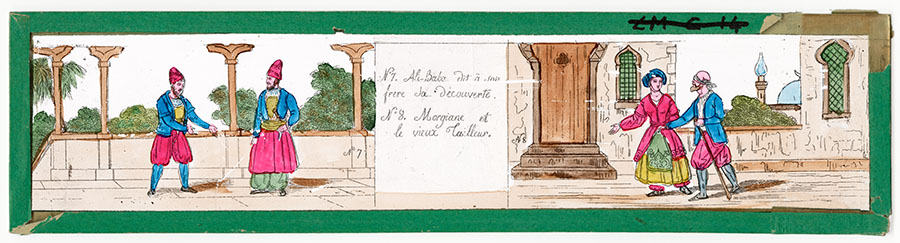 LM C 14
N° 7. Ali-Baba dit à son
frère sa découverte.
N° 8. Morgiane et
le vieux Tailleur.
N° 7
N° 8